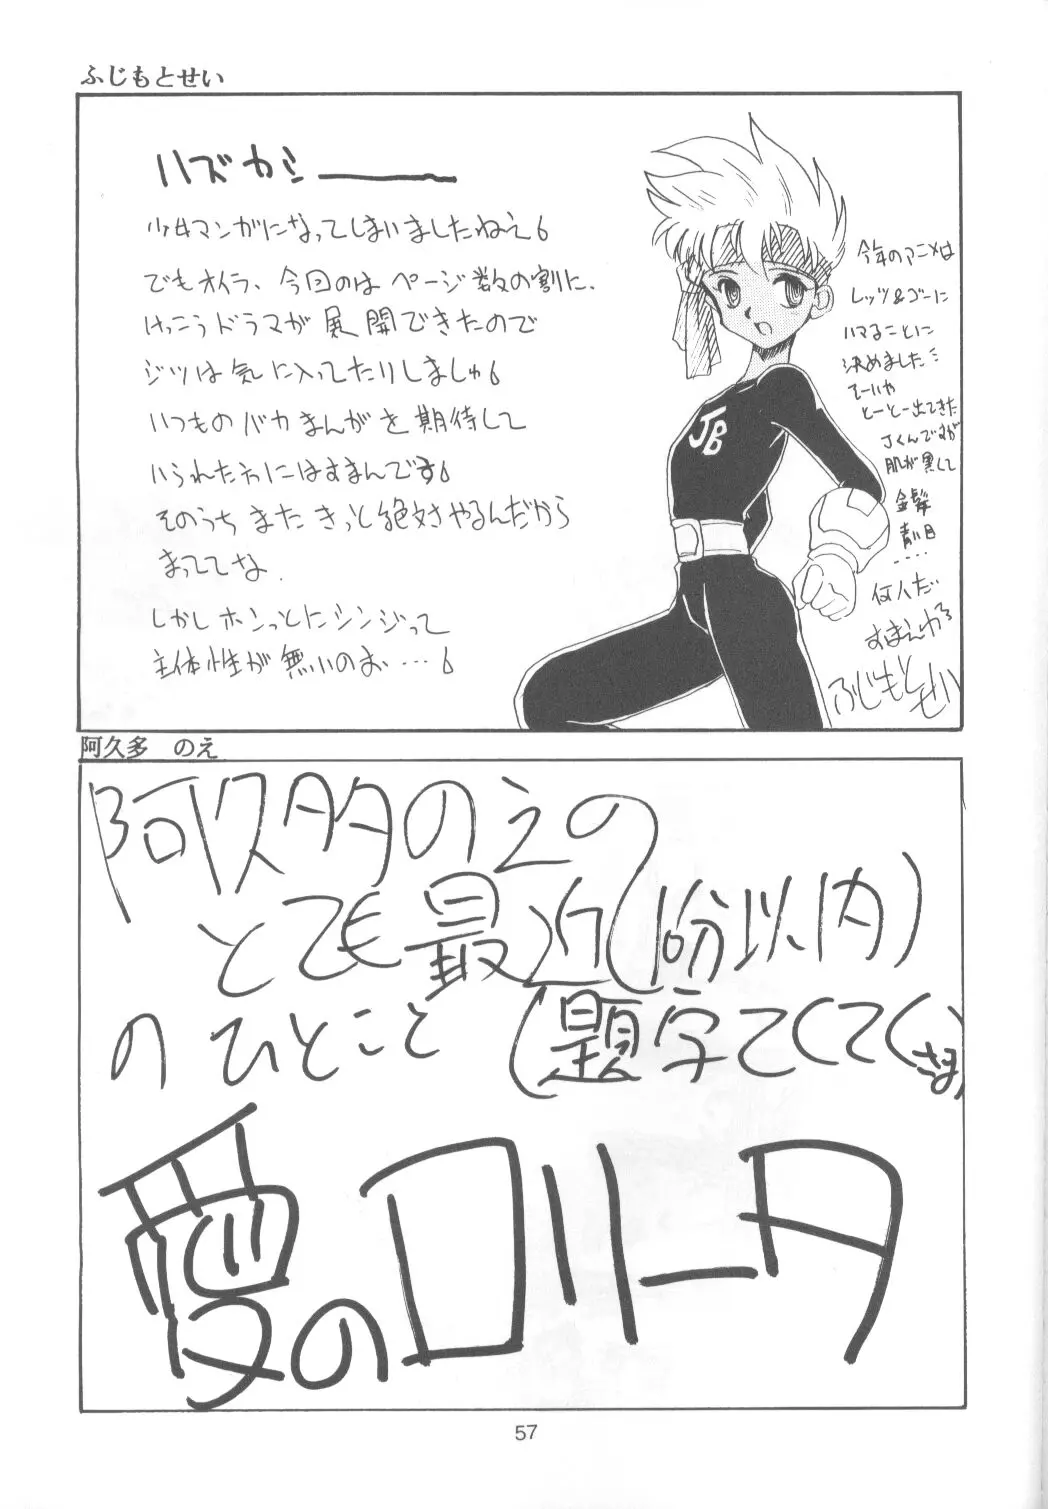 ふじもとせい
ハズカシ――
少年マンガになってしまいましたねえ6
でもオイラ、今回のはページ数の割に、
けっこうドラマが展開できたので
ジツは気に入ってたりしましゅ6
いつものバカまんがを期待して
いられた方にはすまんです6
そのうちまたきっと絶対やるんだから
まっててな.
しかしホンっとにシンジって
主体性が無いのお…6
JB
今年のアニメは
レッツ&ゴーに
ハマることに
決めました
てーいや
とーとー出てきた
Jくんですが
肌が黒くて
金髪
青い目
....
何人だ
すまんのう
ふじもとせい
阿久多 のえ
阿久多のえの
とても最近(10分以内)
のひとこと(題字てくてくさま)
愛のロリータ
57